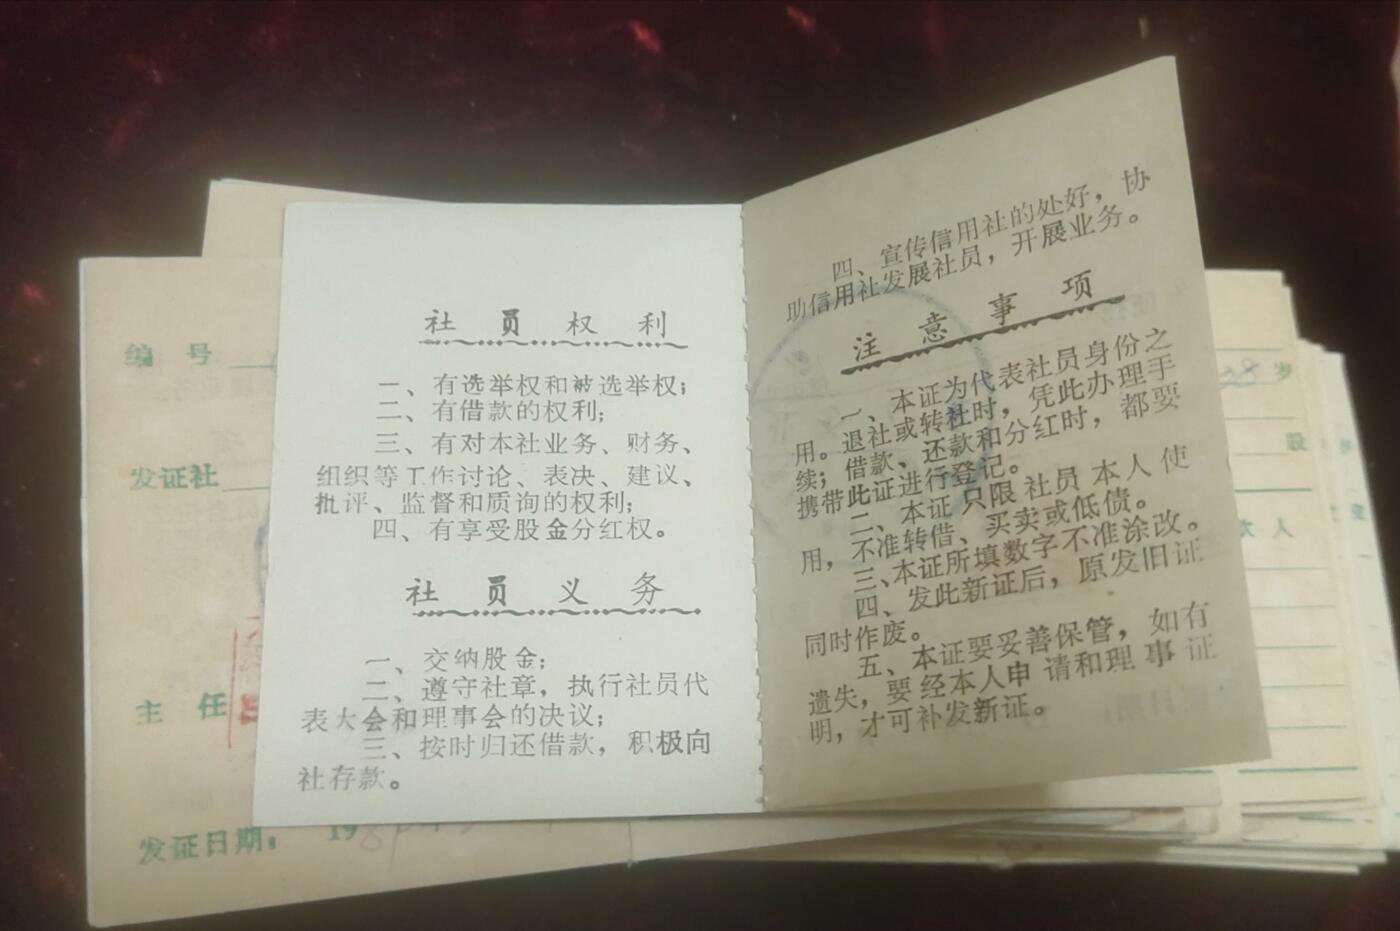 社员权利
一、有选举权和被选举权；
二、有借款的权利；
三、有对本社业务、财务、
组织等工作讨论、表决、建议、
批评、监督和质询的权利；
四、有享受股金分红权。
社员义务
一、交纳股金；
二、遵守社章，执行社员代
表大会和理事会的决议；
三、按时归还借款，积极向
社存款。
四、宣传信用社的处好，协
助信用社发展社员，开展业务。
注意事项
一、本证为代表社员身份之
用。退社或转社时，凭此办理手
续；借款、还款和分红时，都要
携带此证进行登记。
二、本证只限社员本人使
用，不准转借、买卖或低债。
三、本证所填数字不准涂改。
四、发此新证后，原发旧证
同时作废。
五、本证要妥善保管，如有
遗失，要经本人申请和理事证
明，才可补发新证。
编号
发证社
主任
发证日期：198
28岁
股
款人